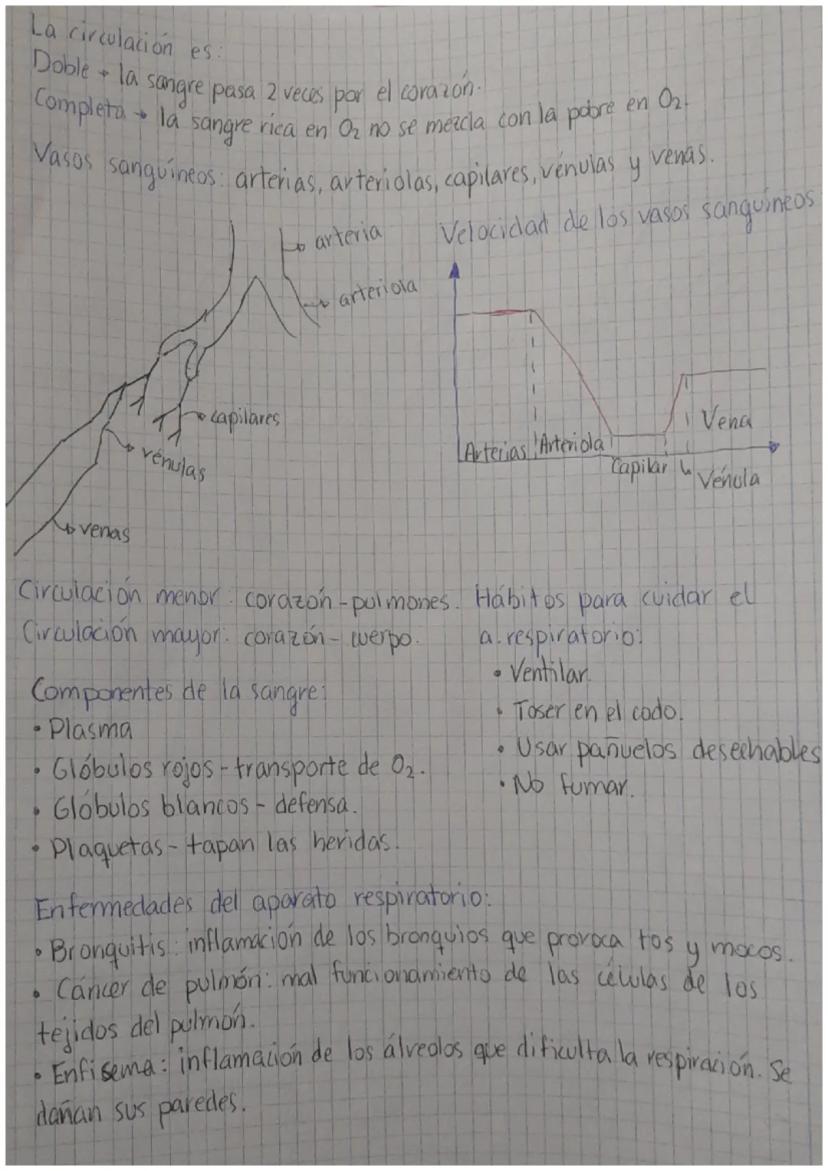 La circulación es:
Doble → la sangre pasa 2 veces por el corazón.
Completa → la sangre rica en O₂ no se mezcla con la pobre en O₂.
Vasos sanguíneos: arterias, arteriolas, capilares, vénulas y venas.
→ arteria
→ arteriola
→ capilares
→ vénulas
→ venas
Velocidad de los vasos sanguíneos
Arterias Arteriola
Capilar
Vena
↳ Vénula
Circulación menor: corazón-pulmones.
Circulación mayor: corazón-cuerpo.
Componentes de la sangre:
• Plasma
• Glóbulos rojos - transporte de O₂.
• Glóbulos blancos - defensa.
• Plaquetas - tapan las heridas.
Hábitos para cuidar el
a. respiratorio:
• Ventilar.
• Toser en el codo.
• Usar pañuelos desechables
• No fumar.
Enfermedades del aparato respiratorio:
• Bronquitis: inflamación de los bronquios que provoca tos y mocos.
• Cáncer de pulmón: mal funcionamiento de las células de los
tejidos del pulmón.
• Enfisema: inflamación de los álveolos que dificulta la respiración. Se
dañan sus paredes.